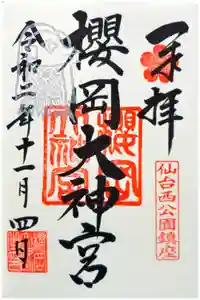 奉拝
櫻岡大神宮
仙台西公園鎮座
令和二年十一月四日